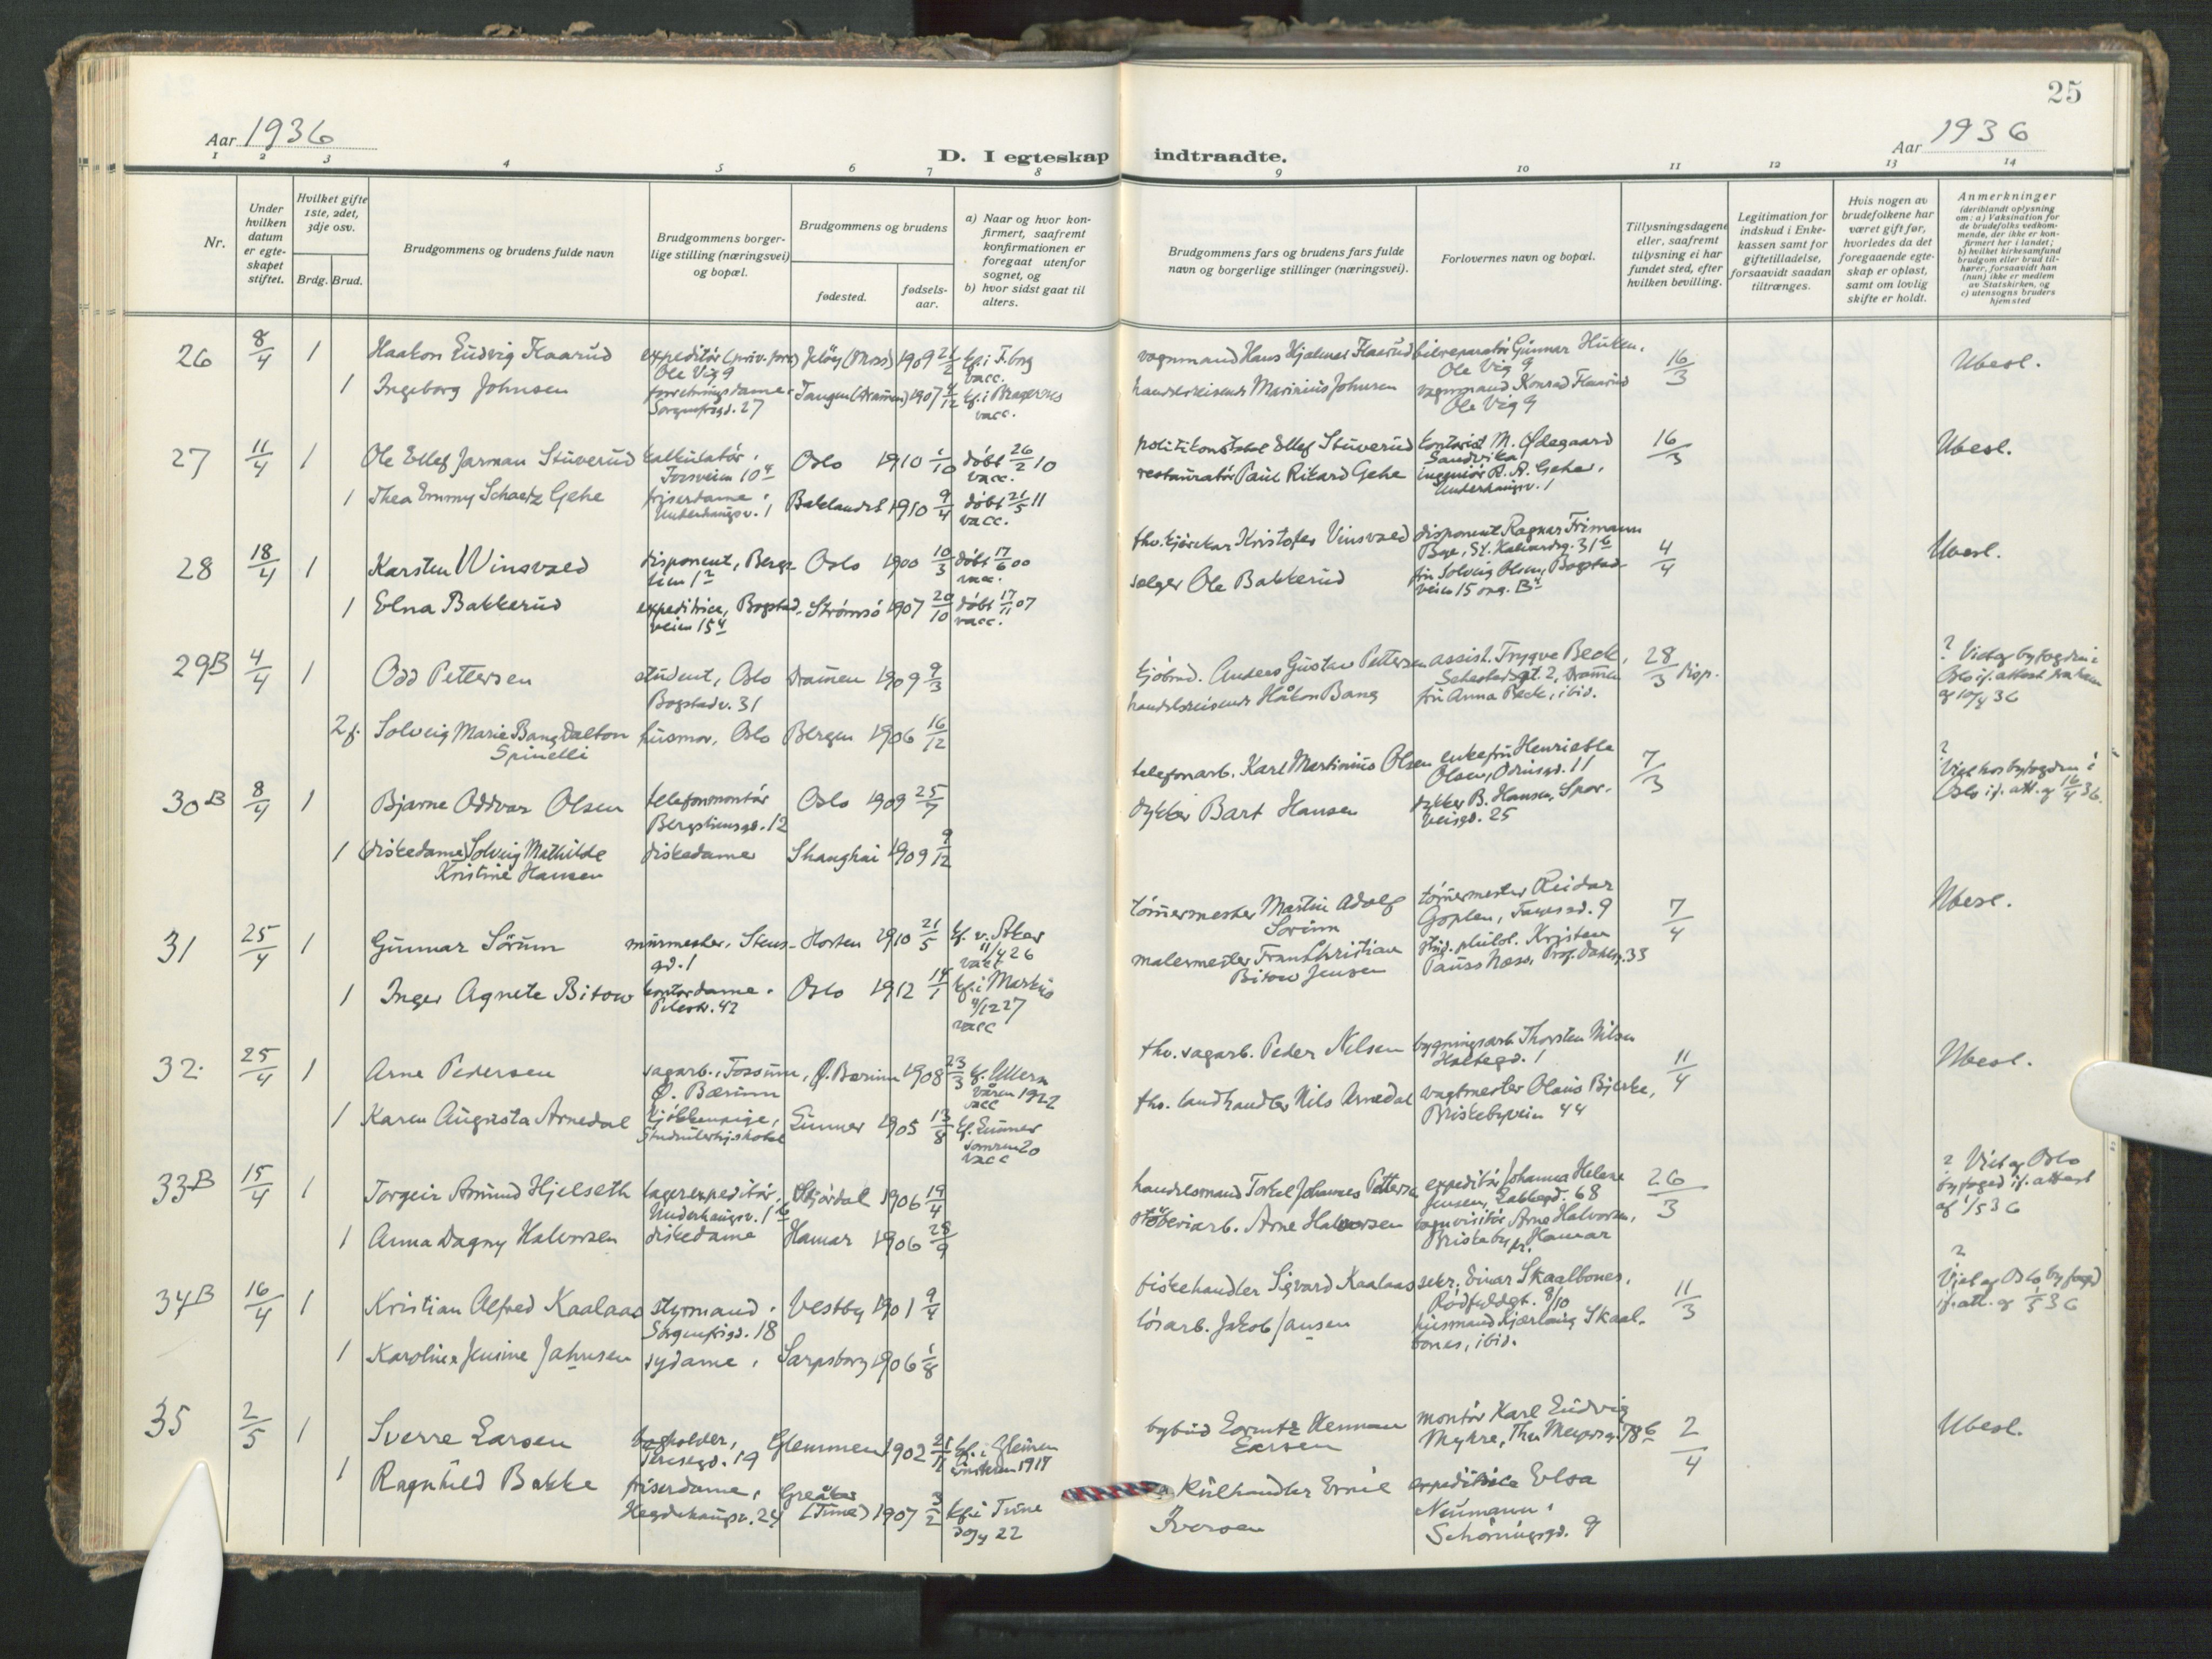 25
Aar 1936
Aar 1936
D. I egteskap indtraadte.
1 2 3 4 5 6 7 8 9 10 11 12 13 14
Nr.
Under hvilken datum er egteskapet stiftet.
Hvilket gifte 1ste, 2det, 3dje osv.
Brdg. Brud.
Brudgommens og brudens fulde navn
Brudgommens borgerlige stilling (næringsvei) og bopæl.
Brudgommens og brudens
fødested.
fødselsaar.
a) Naar og hvor konfirmert, saafremt konfirmationen er foregaat utenfor sognet, og
b) hvor sidst gaat til alters.
Brudgommens fars og brudens fars fulde navn og borgerlige stillinger (næringsvei).
Forlovernes navn og bopæl.
Tillysningsdagene eller, saafremt tillysning ei har fundet sted, efter hvilken bevilling.
Legitimation for indskud i Enkekassen samt for giftetilladelse, forsaavidt saadan tiltrænges.
Hvis nogen av brudefolkene har været gift før, hvorledes da det foregaaende egteskap er opløst, samt om lovlig skifte er holdt.
Anmerkninger
(deriblandt oplysning om: a) Vaksination for de brudefolks vedkommende, der ikke er konfirmert her i landet; b) hvilket kirkesamfund brudgom eller brud tilhører, forsaavidt han (hun) ikke er medlem av Statskirken, og c) utensogns bruders hjemsted
26 8/4 1 Haakon Ludvig Flaarud
Ole Vig 9
Jeløy (Moss) 1909 kf. i F.borg vacc.
vognmand Hans Hjalmar Flaarud bilreparatør Gunnar
Ole Vig 9
16/3 Ubesl.
1 Ingeborg Johnsen forretningsdame.
Sorgenfrigd. 27
Tangen (Drammen) 1907 4/12 kf. i Bragernes vacc.
handelsreisende Marinius Johnsen vognmand Konrad Flaarud
Ole Vig 9
27 11/4 1 Ole Ellef Jarman Stuverud kalkulatør.
Oslo 1910 1/10 døbt 26/2 10 vacc.
Ellef Stuverud kontorist M. Ødegaard
Sandvika
16/3 Ubesl.
1 Thea Emmy Schaetz Gehe friserdame.
Underhaugsv. 1
Baklandet 1910 9/4 døbt 21/5 11 vacc.
restauratør Paul Rikard Gehe ingeniør R. R. Gehe,
Underhaugsv. 1
28 18/4 1 Karsten Winsvold disponent,
Oslo 1900 10/3 døbt 17/6 00 vacc.
Kristofer Vinsvold disponent Ragnar Frimann
Bye, St. Halvardsg. 31
4/4 Ubesl.
1 Elna Bakkerud expeditrice, Bogstadveien 15
Strømsø 1907 20/10 døbt 17/11 07 vacc.
selger Ole Bakkerud fru Solveig Olsen, Bogstadveien 15
29B 4/4 1 Odd Pettersen student, Oslo
Bogstadv. 31
Dramen 1909 9/3
kjøbmd. Anders Gustav Pettersen assist. Trygve Beck,
Schestedsgt. 2, Dramen
28/3 disp.
2 f. Solveig Marie Bang Dalton Spinelli
husmor, Oslo Bergen 1906 16/12
handelsreisende Håkon Bang fru Anna Beck, ibid.
30B 8/4 1 Bjarne Oddvar Olsen telefonmontør
Bergsliensgd. 12
Oslo 1909 25/7
telefonarb. Karl Martinius Olsen enkefru Henriette
Olsen, Odinsgd. 11
7/3
1 (diskedame) Solveig Mathilde Kristine Hansen
diskedame Shanghai 1909 9/12
dykker Bart Hansen dykker B. Hansen, Sporveisgd. 25
31 25/4 1 Gunnar Sørum murmester, Stensgd. 1
Horten 1910 21/5 kf. v. Aker 11/4 26 vacc
tømermester Martin Adolf Sørum
tømermester Reidar
Goplen, Fagerd. 9
7/4 Ubesl.
1 Inger Agnete Bitow kontordame.
Pilestr. 42
Oslo 1912 14/1 kf. i Markus 4/12 27 vacc
malermester Frantz Christian Bitow Jensen
stud. philol. Kristen
Pauss Næss, Prof. Dahlsg. 33
32. 25/4 1 Arne Pedersen sagarb., Fossum,
Ø. Bærum
Ø. Bærum 1908 23/3 kf. Ullern våren 1922 vacc
fhv. sagarb. Peder Nilsen bygningsarb Thorsten Nilsen
Holtegd. 1
11/4 Ubesl.
1 Karen Augusta Arnedal kjøkkenpige,
Lunner 1905 13/8 kf. Lunner 20 vacc
fhv. landhandler Nils Arnedal vagtmester Olaus Bjerke,
Briskebyveien 44
33B 15/4 1 Torgeir Amund Hjelseth lagerexpeditør,
Underhaugsv. 1
Stjørdal 1906 19/4
handelsmand Torkel Johannes Pettersen expeditør Johanna Helene
Jensen, Lakkegd. 68
26/3
2 Viet av Oslo byfoged if. attest af 1/5 36
1 Anna Dagny Halvorsen diskedame Hamar 1906 28/9
støberiarb. Arne Halvorsen vognvisitør Arne Halvorsen,
Briskeby pr. Hamar
34B 16/4 1 Kristian Alfred Kaalaas styrmand.
Sorgenfrigd. 18
Vestby 1901 9/4
fiskehandler Sigvard Kaalaas sekr. Einar Skaalbones,
Rødfyldgt. 8/10
11/3
Viet av Oslo byfogd if. att. af 1/5 36
1 Karoline Jensine Jahnsen sydame, Sarpsborg 1906 1/8
løsarb. Jakob Jansen
35 2/5 1 Sverre Larsen bogholder,
Teresegd. 19
Glemmen 1902 kf. i Glemmen 1917
bybud Lorentz Herman Larsen
montør Karl Ludvig
Myhre, Thv. Meyersg. 78
2/4 Ubesl.
1 Ragnhild Bakke friserdame,
Hegdehaugsv. 24
Greåker (Tune) 1907 3/2 kf. i Tune 22
Kulhandler Emil Iversen
expeditrice Elsa
Neumann,
Schøningsgd. 9